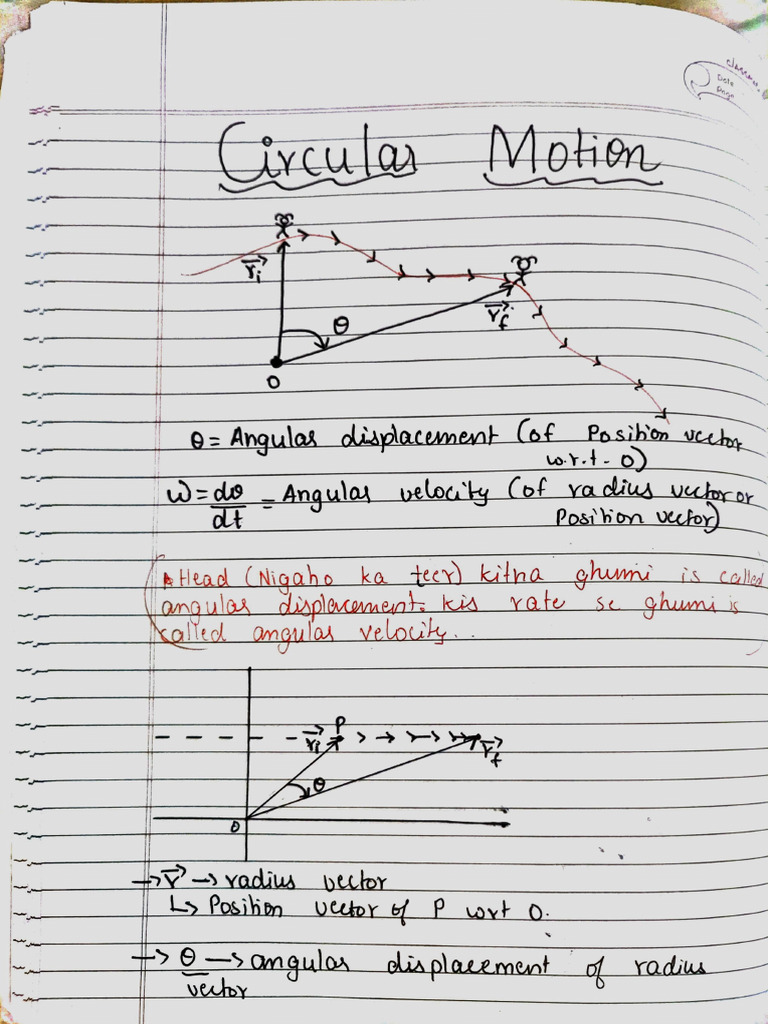 classmate
Date
Page
Circular Motion
r⃗i
θ
r⃗f
O
θ = Angular displacement (of Position vector
w.r.t. O)
ω = dθ/dt = Angular velocity (of radius vector or
Position vector)
Head (Nigaho ka teer) kitna ghumi is called
angular displacement. Kis rate se ghumi is
called angular velocity..
P
r⃗i
r⃗f
θ
O
→ r⃗ → radius vector
↳ Position vector of P wrt O.
→ θ → angular displacement of radius
vector